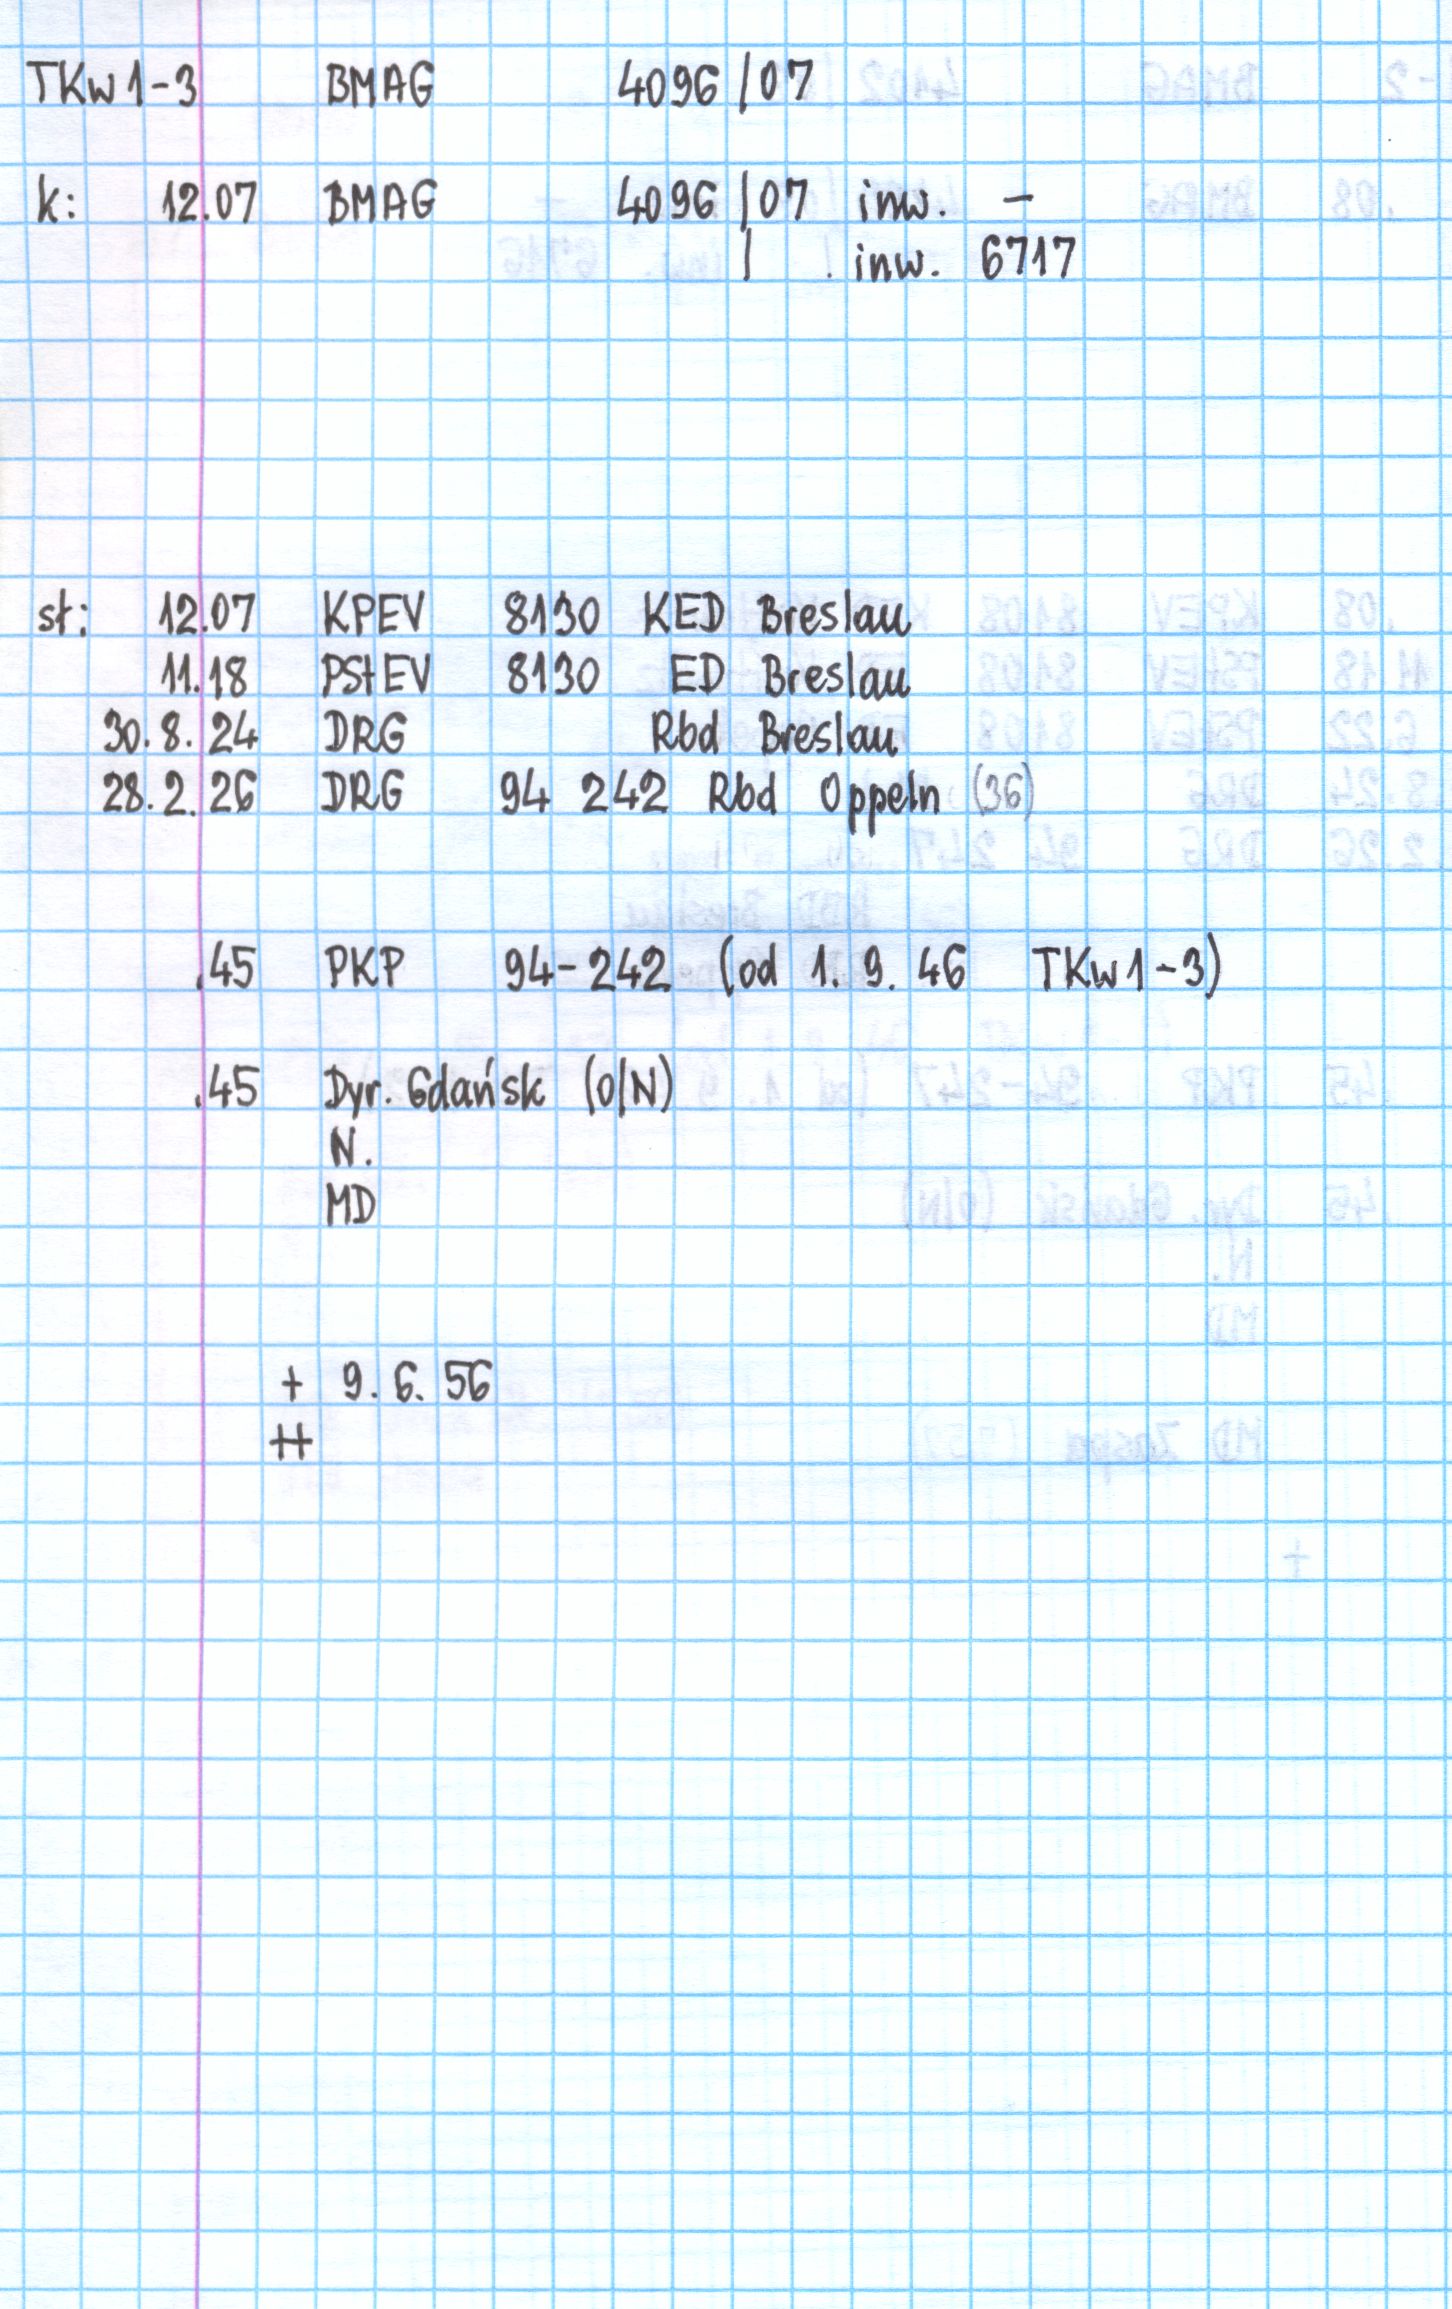 TKw1-3 BMAG 4096/07
k: 12.07 BMAG 4096/07 inw. –
/ inw. 6717
st: 12.07 KPEV 8130 KED Breslau
11.18 PStEV 8130 ED Breslau
30.8.24 DRG Rbd Breslau
28.2.26 DRG 94 242 Rbd Oppeln (36)
.45 PKP 94-242 (od 1.9.46 TKw1-3)
.45 Dyr. Gdańsk (O/N)
N.
MD
+ 9.6.56
++